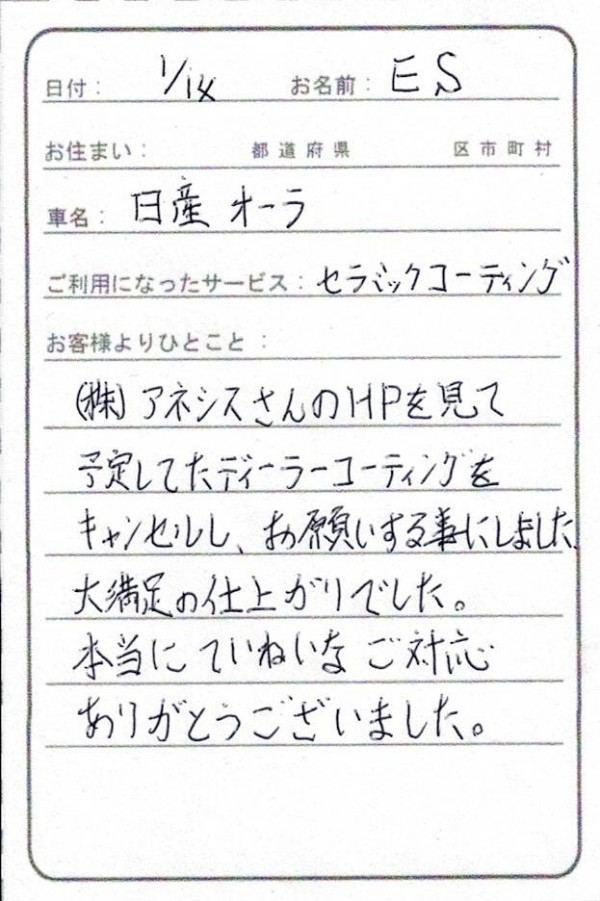 日付： 1/14 お名前： E S
お住まい： 都道府県 区市町村
車名： 日産 オーラ
ご利用になったサービス： セラミックコーティング
お客様よりひとこと：
(株)アネシスさんのHPを見て
予定してたディーラーコーティングを
キャンセルし、お願いする事にしました
大満足の仕上がりでした。
本当にていねいなご対応
ありがとうございました。